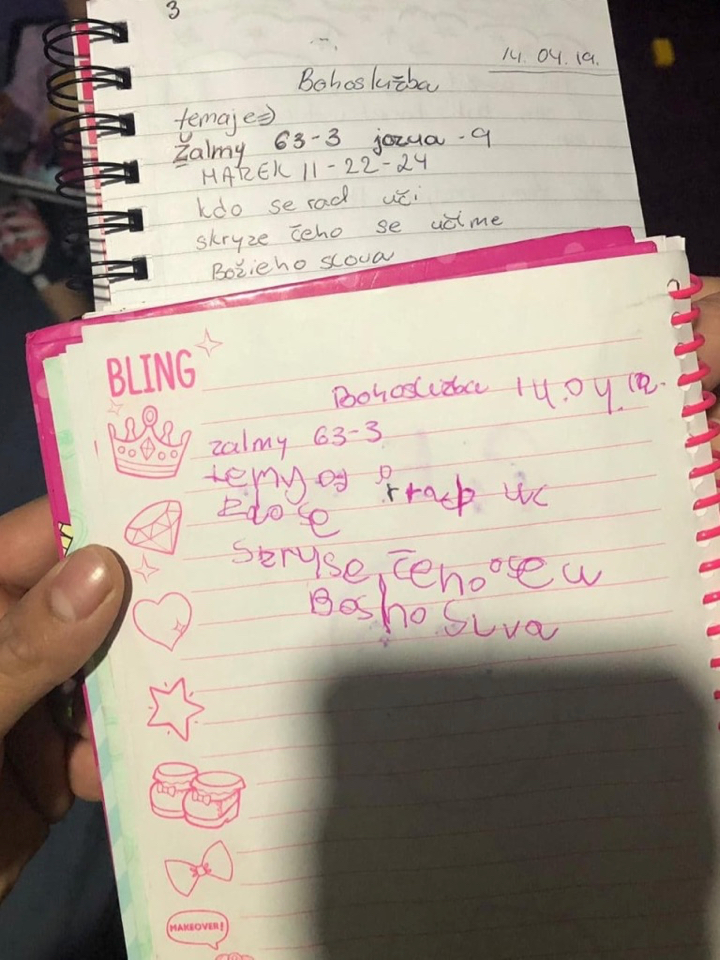 3
14. 04. 19.
Bohoslužba
temaje=)
Žalmy 63-3 jozua - 9
MAREK 11 - 22 - 24
kdo se rad učí
skryze čeho se učíme
Božieho slova
BLING
Bohoslužba 14.04.19.
zalmy 63-3
Kdo se
Skryse čeho se u
Bosho Slva
MAKEOVER!